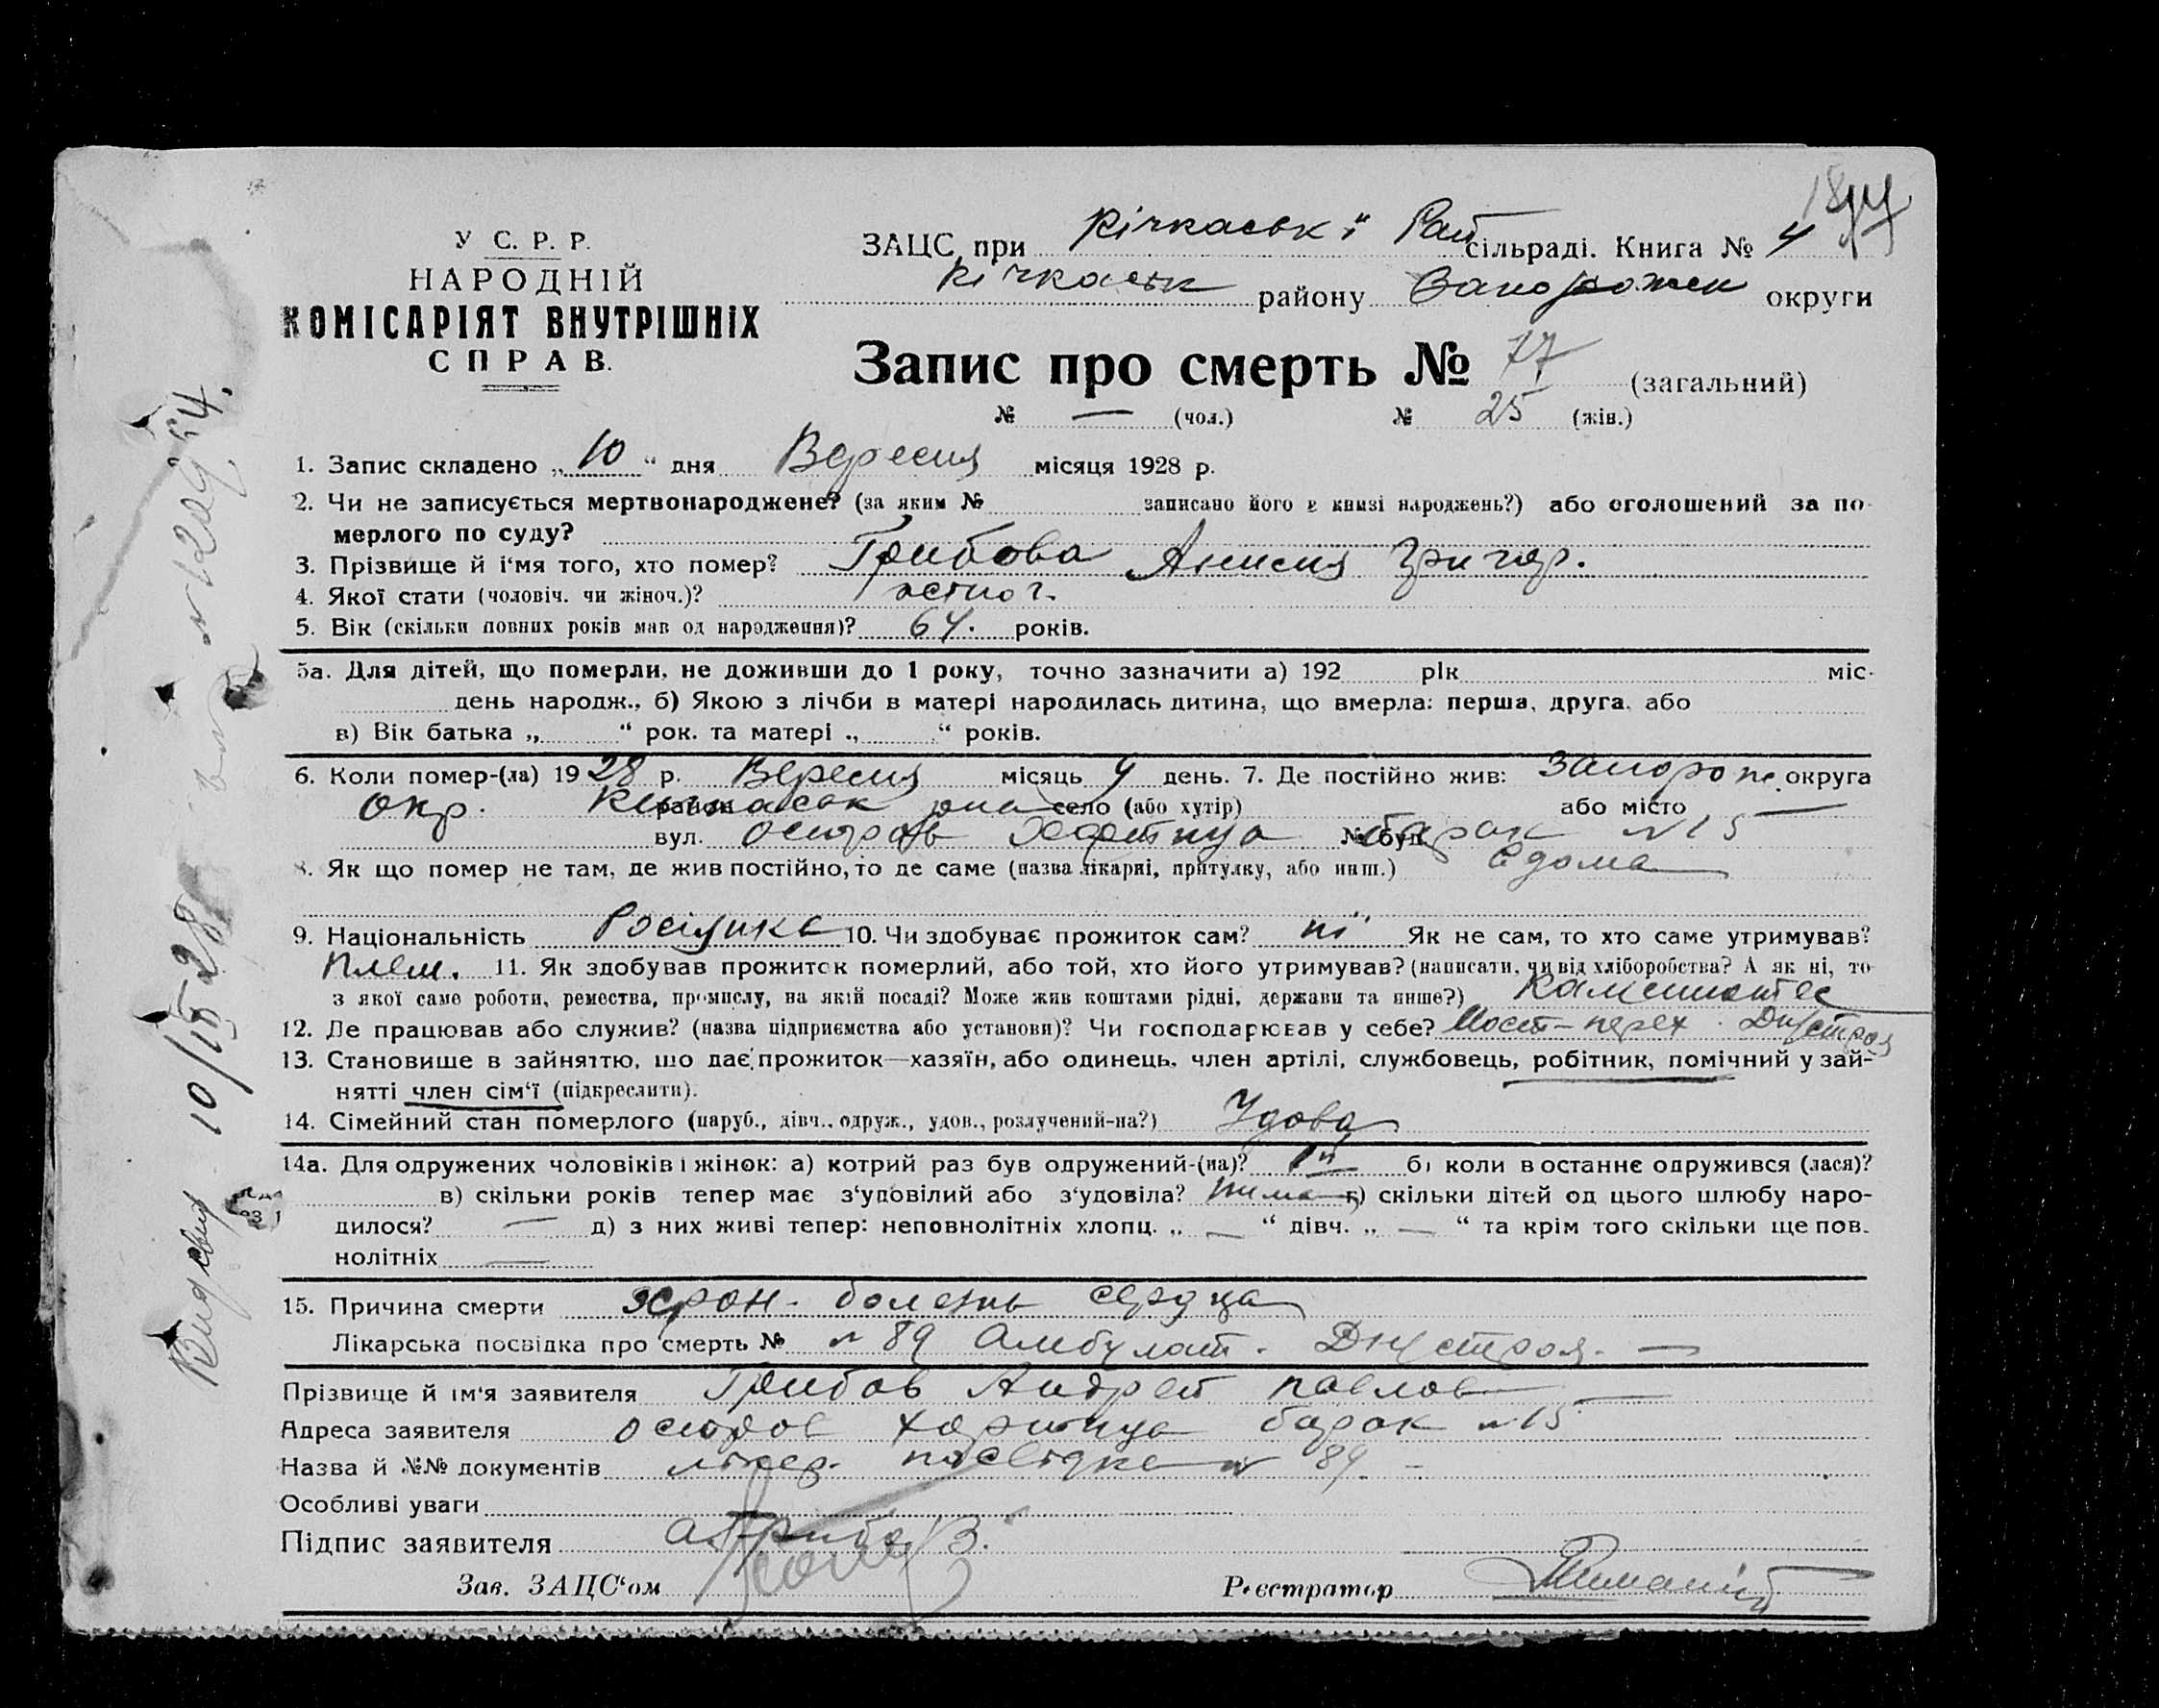 У С. Р. Р.
НАРОДНІЙ
КОМІСАРІЯТ ВНУТРІШНІХ
СПРАВ.
ЗАЦС при Кічкаськ ій Рай сільраді. Книга № 4
Кічкаськ району Запорожск округи
Запис про смерть № 77 (загальний)
№ — (чол.) № 25 (жін.)
1. Запис складено „10“ дня Вересня місяця 1928 р.
2. Чи не записується мертвонароджене? (за яким № записано його в книзі народжень?) або оголошений за по-
мерлого по суду?
3. Прізвище й і'мя того, хто помер? Грибова Анисия Григор.
4. Якої стати (чоловіч. чи жіноч.)? жіноч.
5. Вік (скільки повних років мав од народження)? 64. років.
5а. Для дітей, що померли, не доживши до 1 року, точно зазначити а) 192 рік міс.
день народж., б) Якою з лічби в матері народилась дитина, що вмерла: перша, друга. або
в) Вік батька „ “ рок. та матері „ “ років.
6. Коли помер-(ла) 1928 р. Вересня місяць 9 день. 7. Де постійно жив: Запорож. округа
окр. Кічкаськ район село (або хутір) або місто —
вул. остров Хортица № буд. барак №15
8. Як що помер не там, де жив постійно, то де саме (назва лікарні, притулку, або инш.) Єдома
9. Національність Росіянка 10. Чи здобуває прожиток сам? ні Як не сам, то хто саме утримував?
Плем. 11. Як здобував прожиток померлий, або той, хто його утримував? (написати, чи від хліборобства? А як ні, то
з якої саме роботи, ремества, промислу, на якій посаді? Може жив коштами рідні, держави та инше?)
12. Де працював або служив? (назва підприємства або установи)? Чи господарював у себе? Мост-перех. Дністроя
13. Становище в зайняттю, що дає прожиток—хазяїн, або одинець, член артілі, службовець, робітник, помічний у зай-
нятті член сім'ї (підкреслити).
14. Сімейний стан померлого (паруб., дівч., одруж., удов., розлучений-на?) Удова
14а. Для одружених чоловіків і жінок: а) котрий раз був одружений-(на)? 1й б) коли востаннє одружився (лася)?
в) скільки років тепер має з'уповілий або з'удовіла? нима г) скільки дітей од цього шлюбу наро-
дилося? — д) з них живі тепер: неповнолітніх хлопц. „ — “ дівч. „ — “ та крім того скільки ще пов-
нолітніх —
15. Причина смерти хрон. болезнь сердца
Лікарська посвідка про смерть № №89 Амбулат. Дністроя. —
Прізвище й ім'я заявителя Грибов Андрей Павлов —
Адреса заявителя остров Хортица барак №15
Назва й №№ документів лікар. посвідка № 89 –
Особливі уваги
Підпис заявителя А. Грибов
Зав. ЗАЦС'ом
Реєстратор